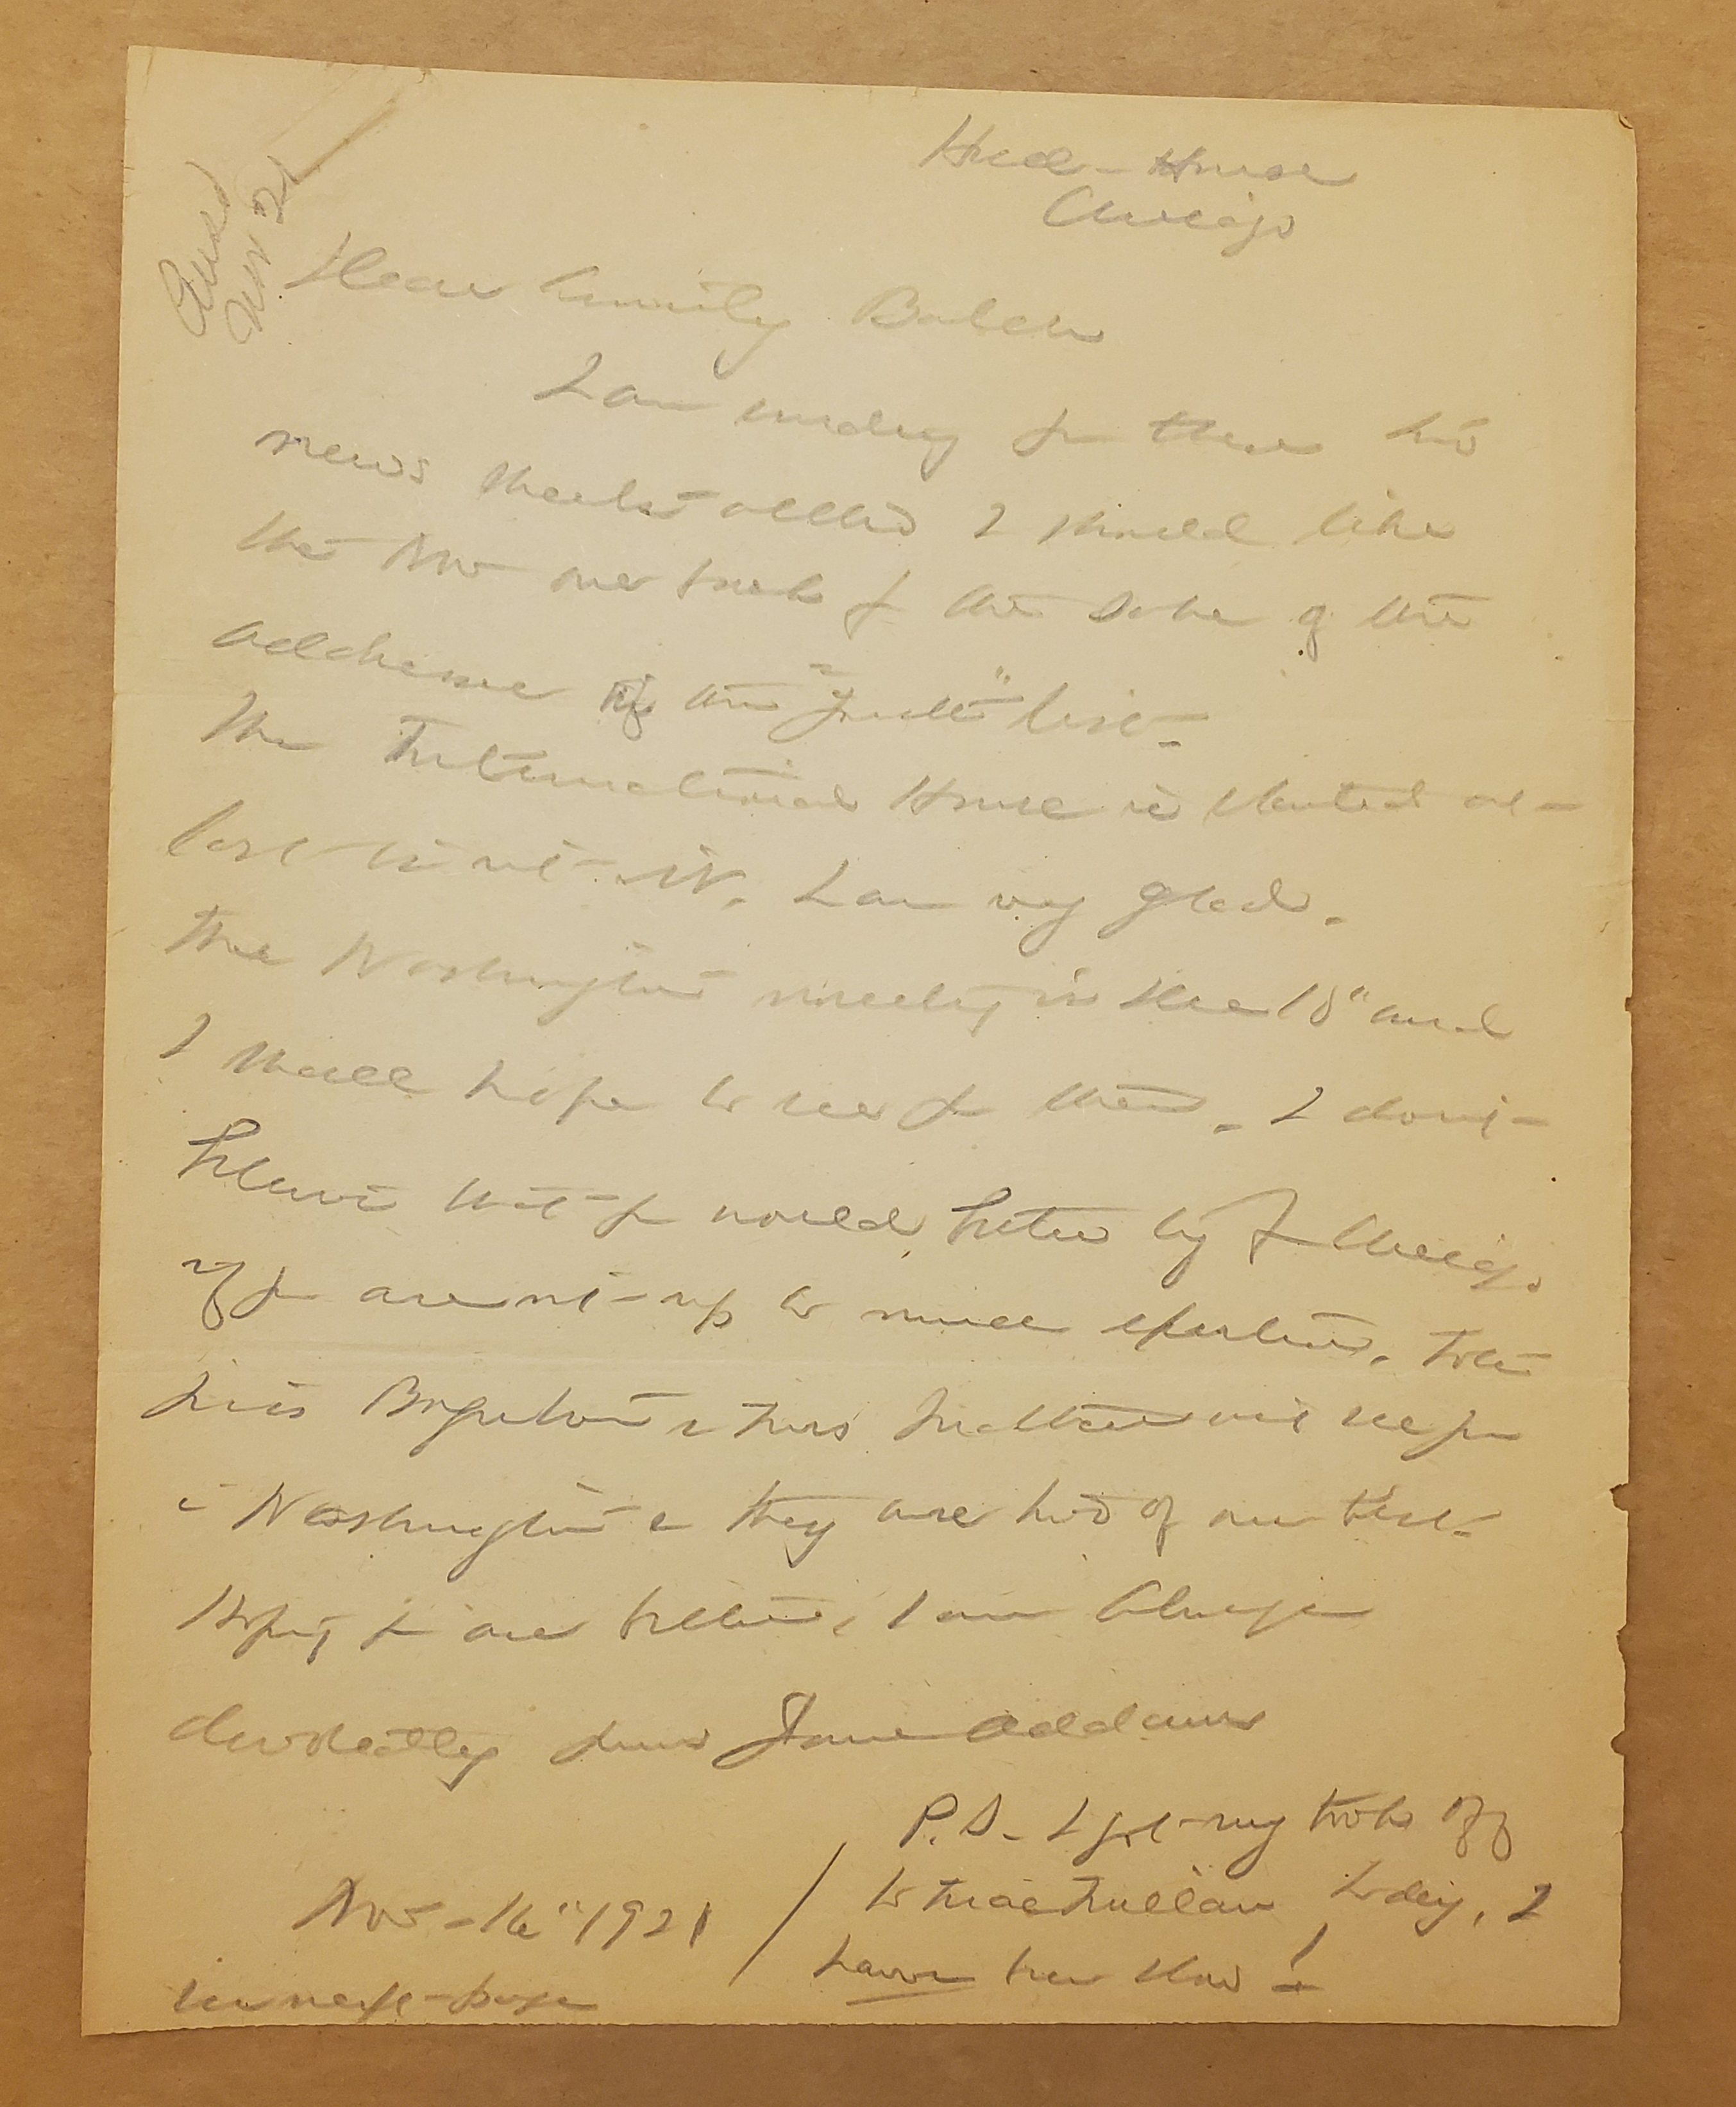 Hull-House
Chicago
Dear Emily Balch
I am sending you these two
news sheets I should like
the one back for the sake of the
addresses of the " " list-
The International House is started at-
last is it not-. I am very glad.
The Washington meeting is the 18" and
I shall hope to see you then. I don't-
believe that you would better try for Chicago
if you are not-up to much exertion. Both
Miss & Miss will see you
in Washington & they are two of our best-
Hoping you are better, I am always
devotedly yours Jane Addams
P.S. I got my book off
to MacMillan today, I
have been slow!
Nov-16" 1921
see next-page